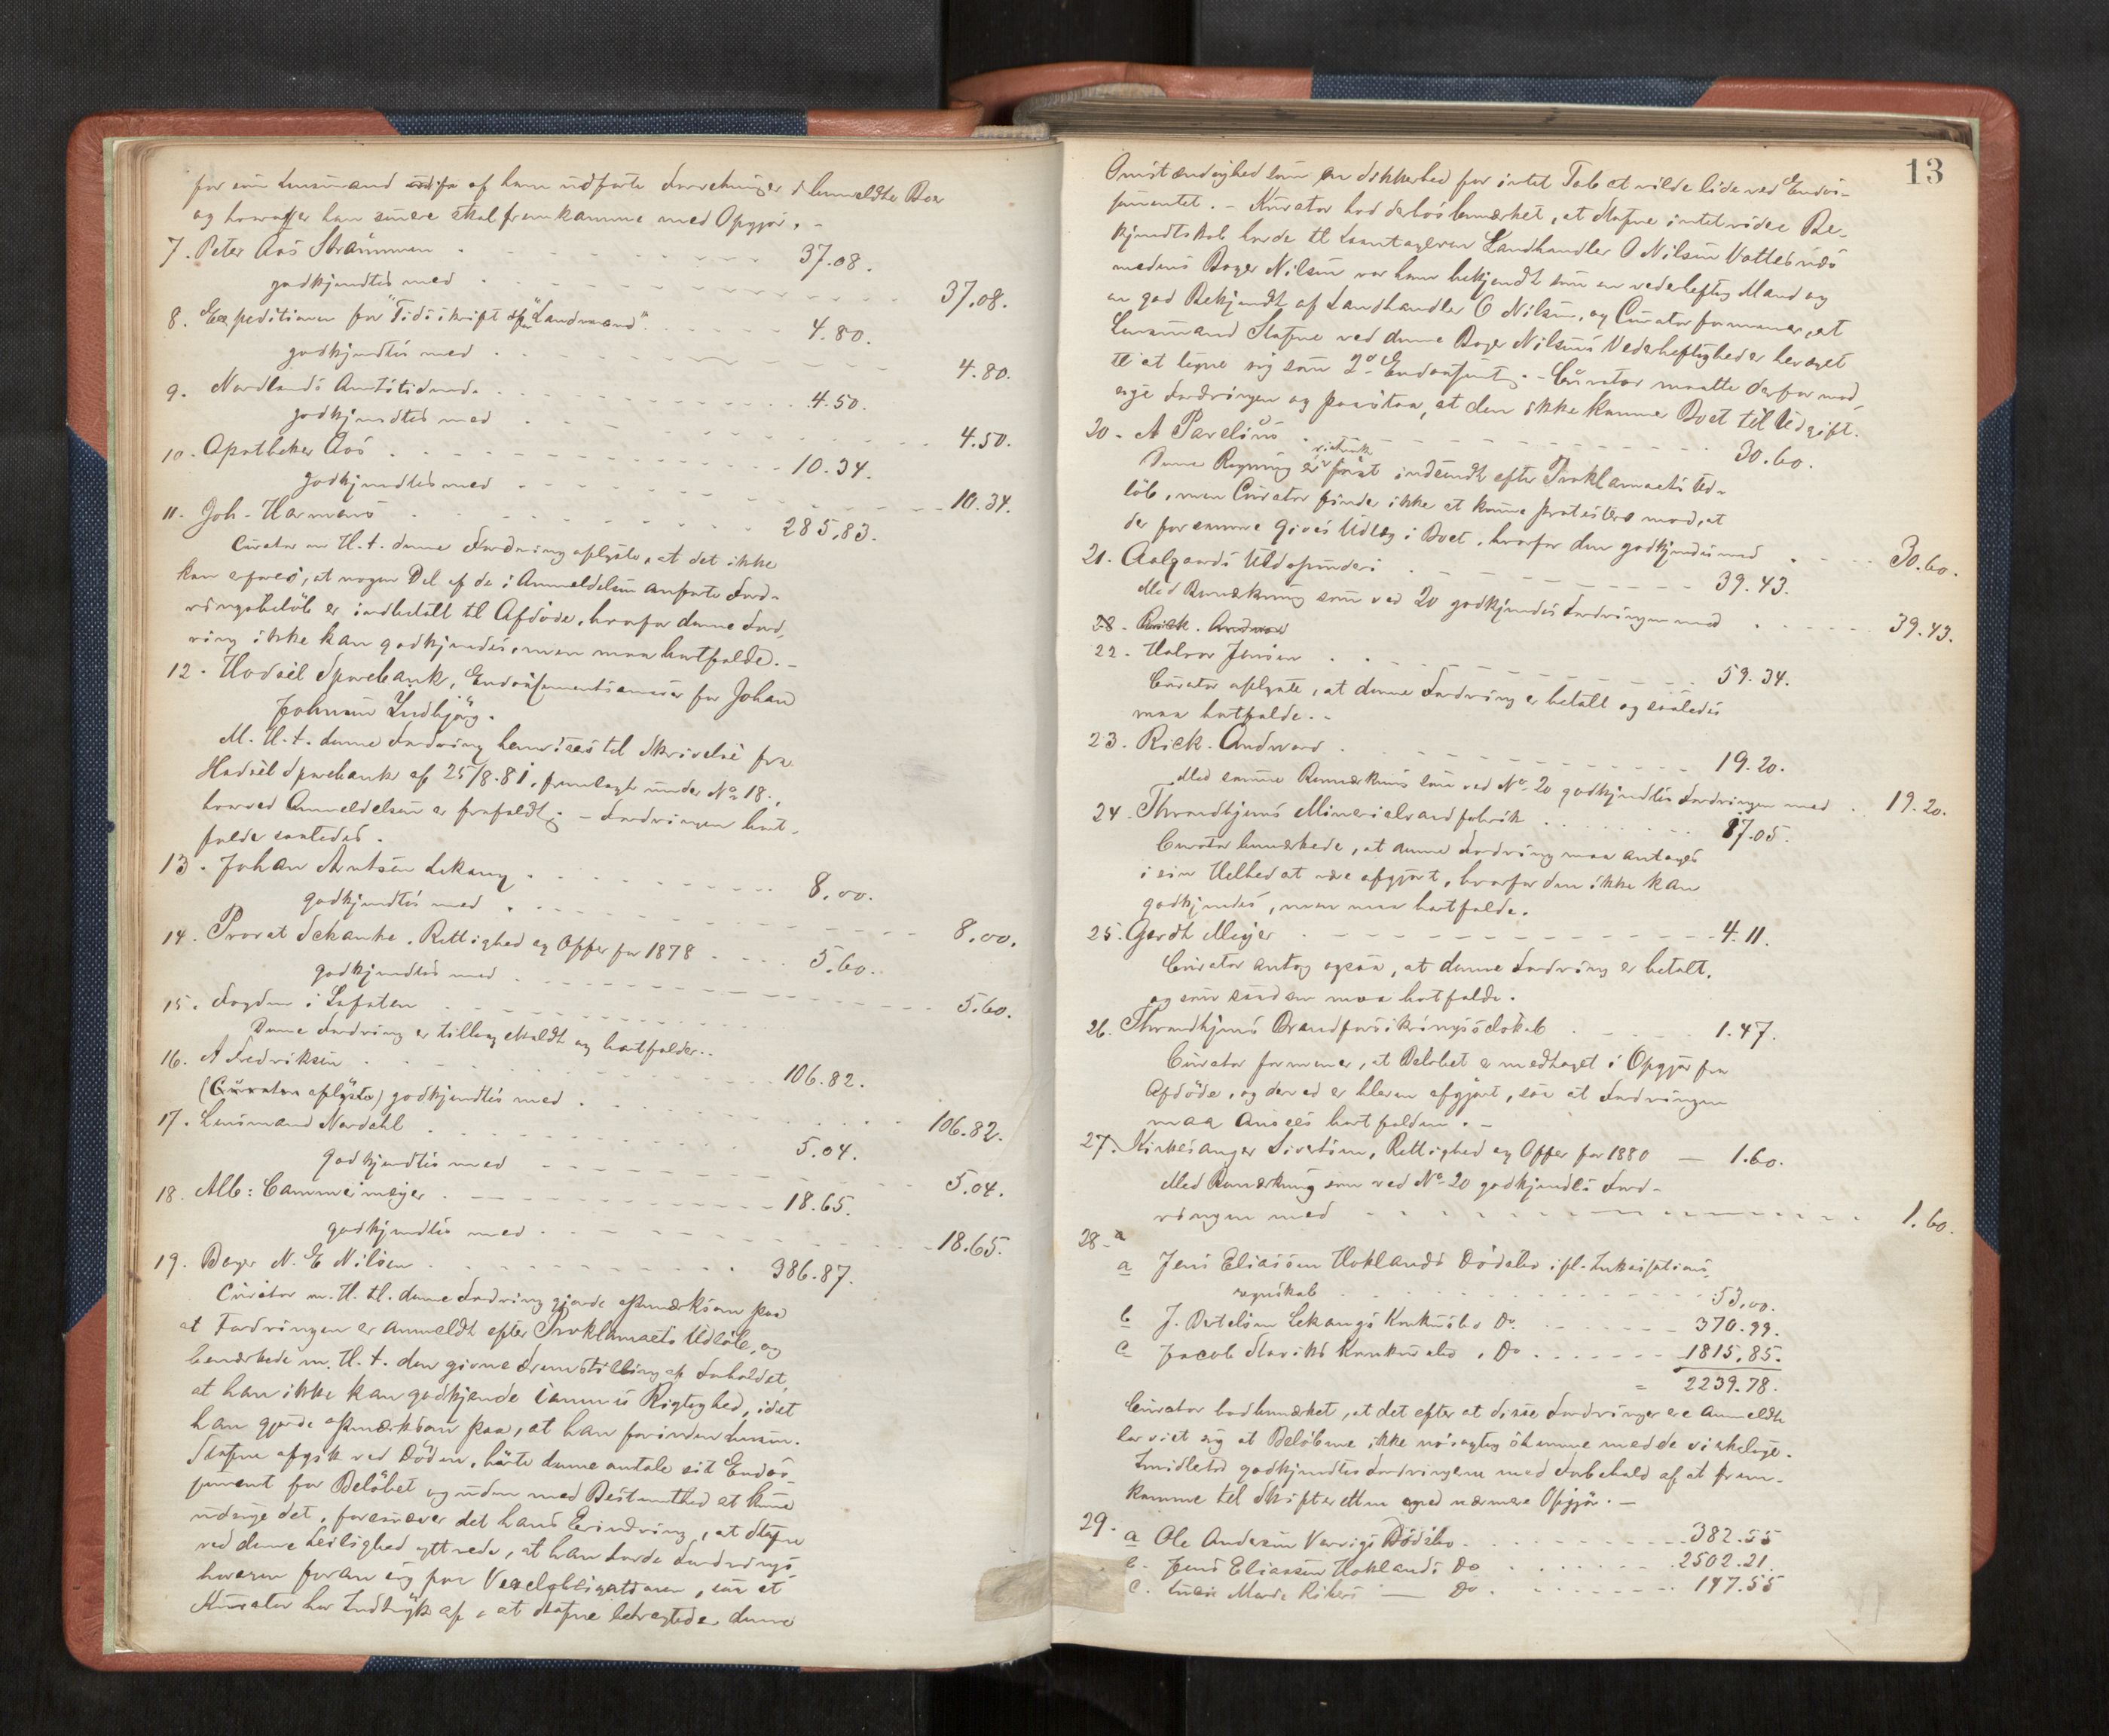 for som Lensmand af ham udførte Forretninger i bemeldte Boer
og hvorefter han senere skal fremkomme med Opgjør. -
7. Peter Aas Strømmen 37.08.
godkjendtes med 37.08.
8. Expeditionen for "Tidsskrift for Landmænd" 4.80.
godkjendtes med 4.80.
9. Nordlands Amtstidende 4.50.
godkjendtes med 4.50.
10. Apotheker Aas 10.34.
godkjendtes med 10.34.
11. Joh. Harmans 285,83.
Curator m. H. t. denne Fordring oplyste, at det ikke
kan erfares, at nogen Del af de i Anmeldelsen anførte Ford-
ringsbeløb er indbetalt til Afdøde, hvorfor denne Ford-
ring ikke kan godkjendes, men maa bortfalde. -
12. Hadsel Sparebank, Endossementsansvar for Johan
Johnsen Indbjør.
M. H. t. denne Fordring henvises til Skrivelse fra
Hadsel Sparebank af 25/8-81, fremlagt under No 18.,
hvorved Anmeldelsen er frafaldt; - Fordringen bort-
falder saaledes.
13. Johan Arntsen Lekang 8,00.
godkjendtes med 8,00.
14. Provst Schanke. Rettighed og Offer for 1878 5.60.
godkjendtes med 5.60.
15. Fogden i Lofoten
Denne Fordring er tilbagekaldt og bortfalder..
16. A Fredriksen 106.82.
(Curator oplyste) godkjendtes med 106.82.
17. Lensmand Nordahl 5.04.
godkjendtes med 5.04.
18. Alb: Cammermeyer 18.65.
godkjendtes med 18.65.
19. Bager N. E Nilsen 386.87.
Curator m. H. t. denne Fordring gjorde opmærksom paa
at Fordringen er anmeldt efter Proklamaets Udløb, og
bemærkede m. H. t. den givne Fremstilling af Forholdet,
at han ikke kan godkjende sammes Rigtighed, idet
han gjorde opmærksom paa, at han forinden Lensm.
Stafne afgik ved Døden, hørte denne omtale sit Endos-
sement for Beløbet og uden med Bestemthed at kunne
udsige det, foresvæver det hans Erindring, at Stafne
ved denne Leilighed yttrede, at han havde Fordrings-
haveren foran sig paa Vexelobligationen, saa at
Kurator har Indtryk af, at Stafne betragtede denne
13
Omstændighed som en Sikkerhed for intet Tab at vilde lide ved Endos-
sementet. - Kurator hod derhos bemærket, at Stafne intet videre Be-
kjendtskab havde til Laantageren Landhandler O Nilsen Vottesnæs
medens Bager Nilsen var ham bekjendt som en vederheftig Mand og
en god Bekjendt af Landhandler O Nilsen, og Curator formener, at
Lensmand Stafne ved denne Bager Nilsens Vederheftighed er bevæget
til at tegne sig som 2o Endossent. - Curator maatte derfor mod-
sige Fordringen og paastaa, at den ikke kommer Boet til Udgift.
20. A Parelius 30.60.
Denne Regning er vistnok først indsendt efter Proklamaets Ud-
løb, men Curator finder ikke at kunne protestere mod, at
der for samme gives Udlæg i Boet, hvorfor den godkjendes med 30.60.
21. Aalgaards Uldspinderi 39.43.
Med Bemærkning som ved 20 godkjendes Fordringen med 39.43.
28. Rick. Andvord
22. Halvor Jensen 59.34.
Curator oplyste, at denne Fordring er betalt og saaledes
maa bortfalde. -
23. Rick. Andvord 19.20.
Med samme Bemærkning som ved No 20 godkjendtes Fordringen med 19.20.
24. Throndhjems Minerialvandfabrik 87.05.
Curator bemærkede, at denne Fordring maa antages
i sin Helhed at være afgjort, hvorfor den ikke kan
godkjendes, men maa bortfalde.
25. Gerdt Meyer 4.11.
Curator antog ogsaa, at denne Fordring er betalt,
og som saadan maa bortfalde.
26. Throndhjems Brandforsikringsselskab 1.47.
Curator formener, at Beløbet er medtaget i Opgjør fra
Afdøde, og derved er bleven afgjort, saa at Fordringen
maa ansees bortfalden. -
27. Kirkesanger Sivertsen, Rettighed og Offer for 1880 — 1.60.
Med Bemærkning som ved No 20 godkjendes Ford-
ringen med 1.60.
28 -
a Jens Eliassen Hoklands Dødsbo ifl. Inkassations-
regnskab 53,00.
b J. Bertelsen Lekangs Konkursbo Do. 370.99.
c Jacob Slaviks Konkursbo, Do 1815,85.
= 2239.78.
Curator bad bemærket, at det efter at disse Fordringer ere anmeldte
har vist sig at Beløbene ikke nøiagtig stemme med de virkelige.
Imidlertid godkjendtes Fordringene med Forbehold af at frem-
komme til Skifteretten med nærmere Opgjør. —
29.
a Ole Andersen Værrigs Dødsbo 382.55
b. Jens Eliassen Hoklands Do 2502.21.
c. Do 147.55